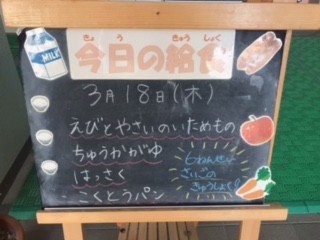 きょう きゅうしょく
今日の給食
MILK
3月18日(木)
えびとやさいのいためもの
ちゅうかがゆ
はっさく
こくとうパン
6ねんせい
さいごの
きゅうしょく!